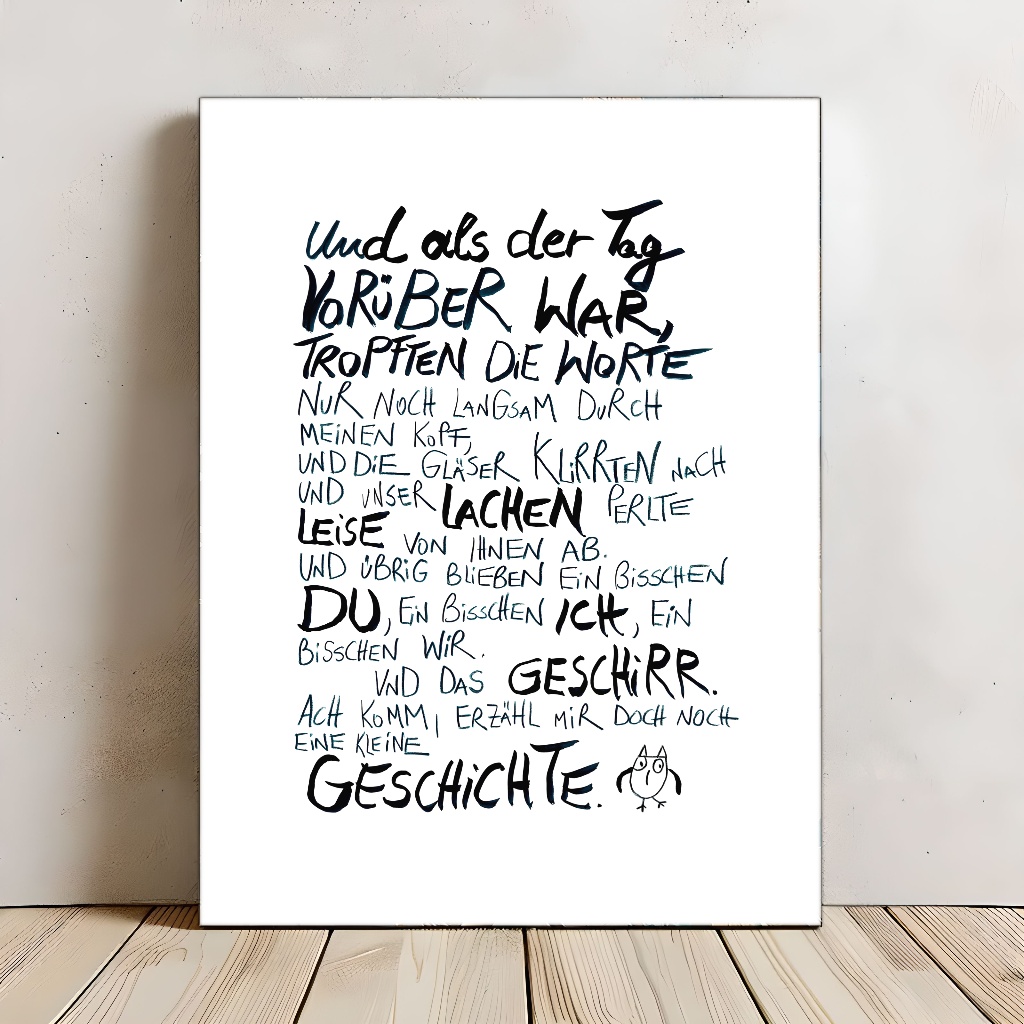 Und als der Tag
VORÜBER WAR,
TROPFTEN DiE WORTE
NUR NOCH LANGSAM DURCH
MEiNEN KOPF,
UND DiE GLÄSER KLiRRTEN NACH
UND UNSER LACHEN PERLTE
LEiSE VON IHNEN AB.
UND ÜBRiG BLiEBEN EiN BiSSCHEN
DU, EiN BiSSCHEN ICH, EiN
BiSSCHEN WiR.
UND DAS GESCHiRR.
ACH KOMM, ERZÄHL MiR DOCH NOCH
EiNE KLEiNE
GESCHiCHTE.